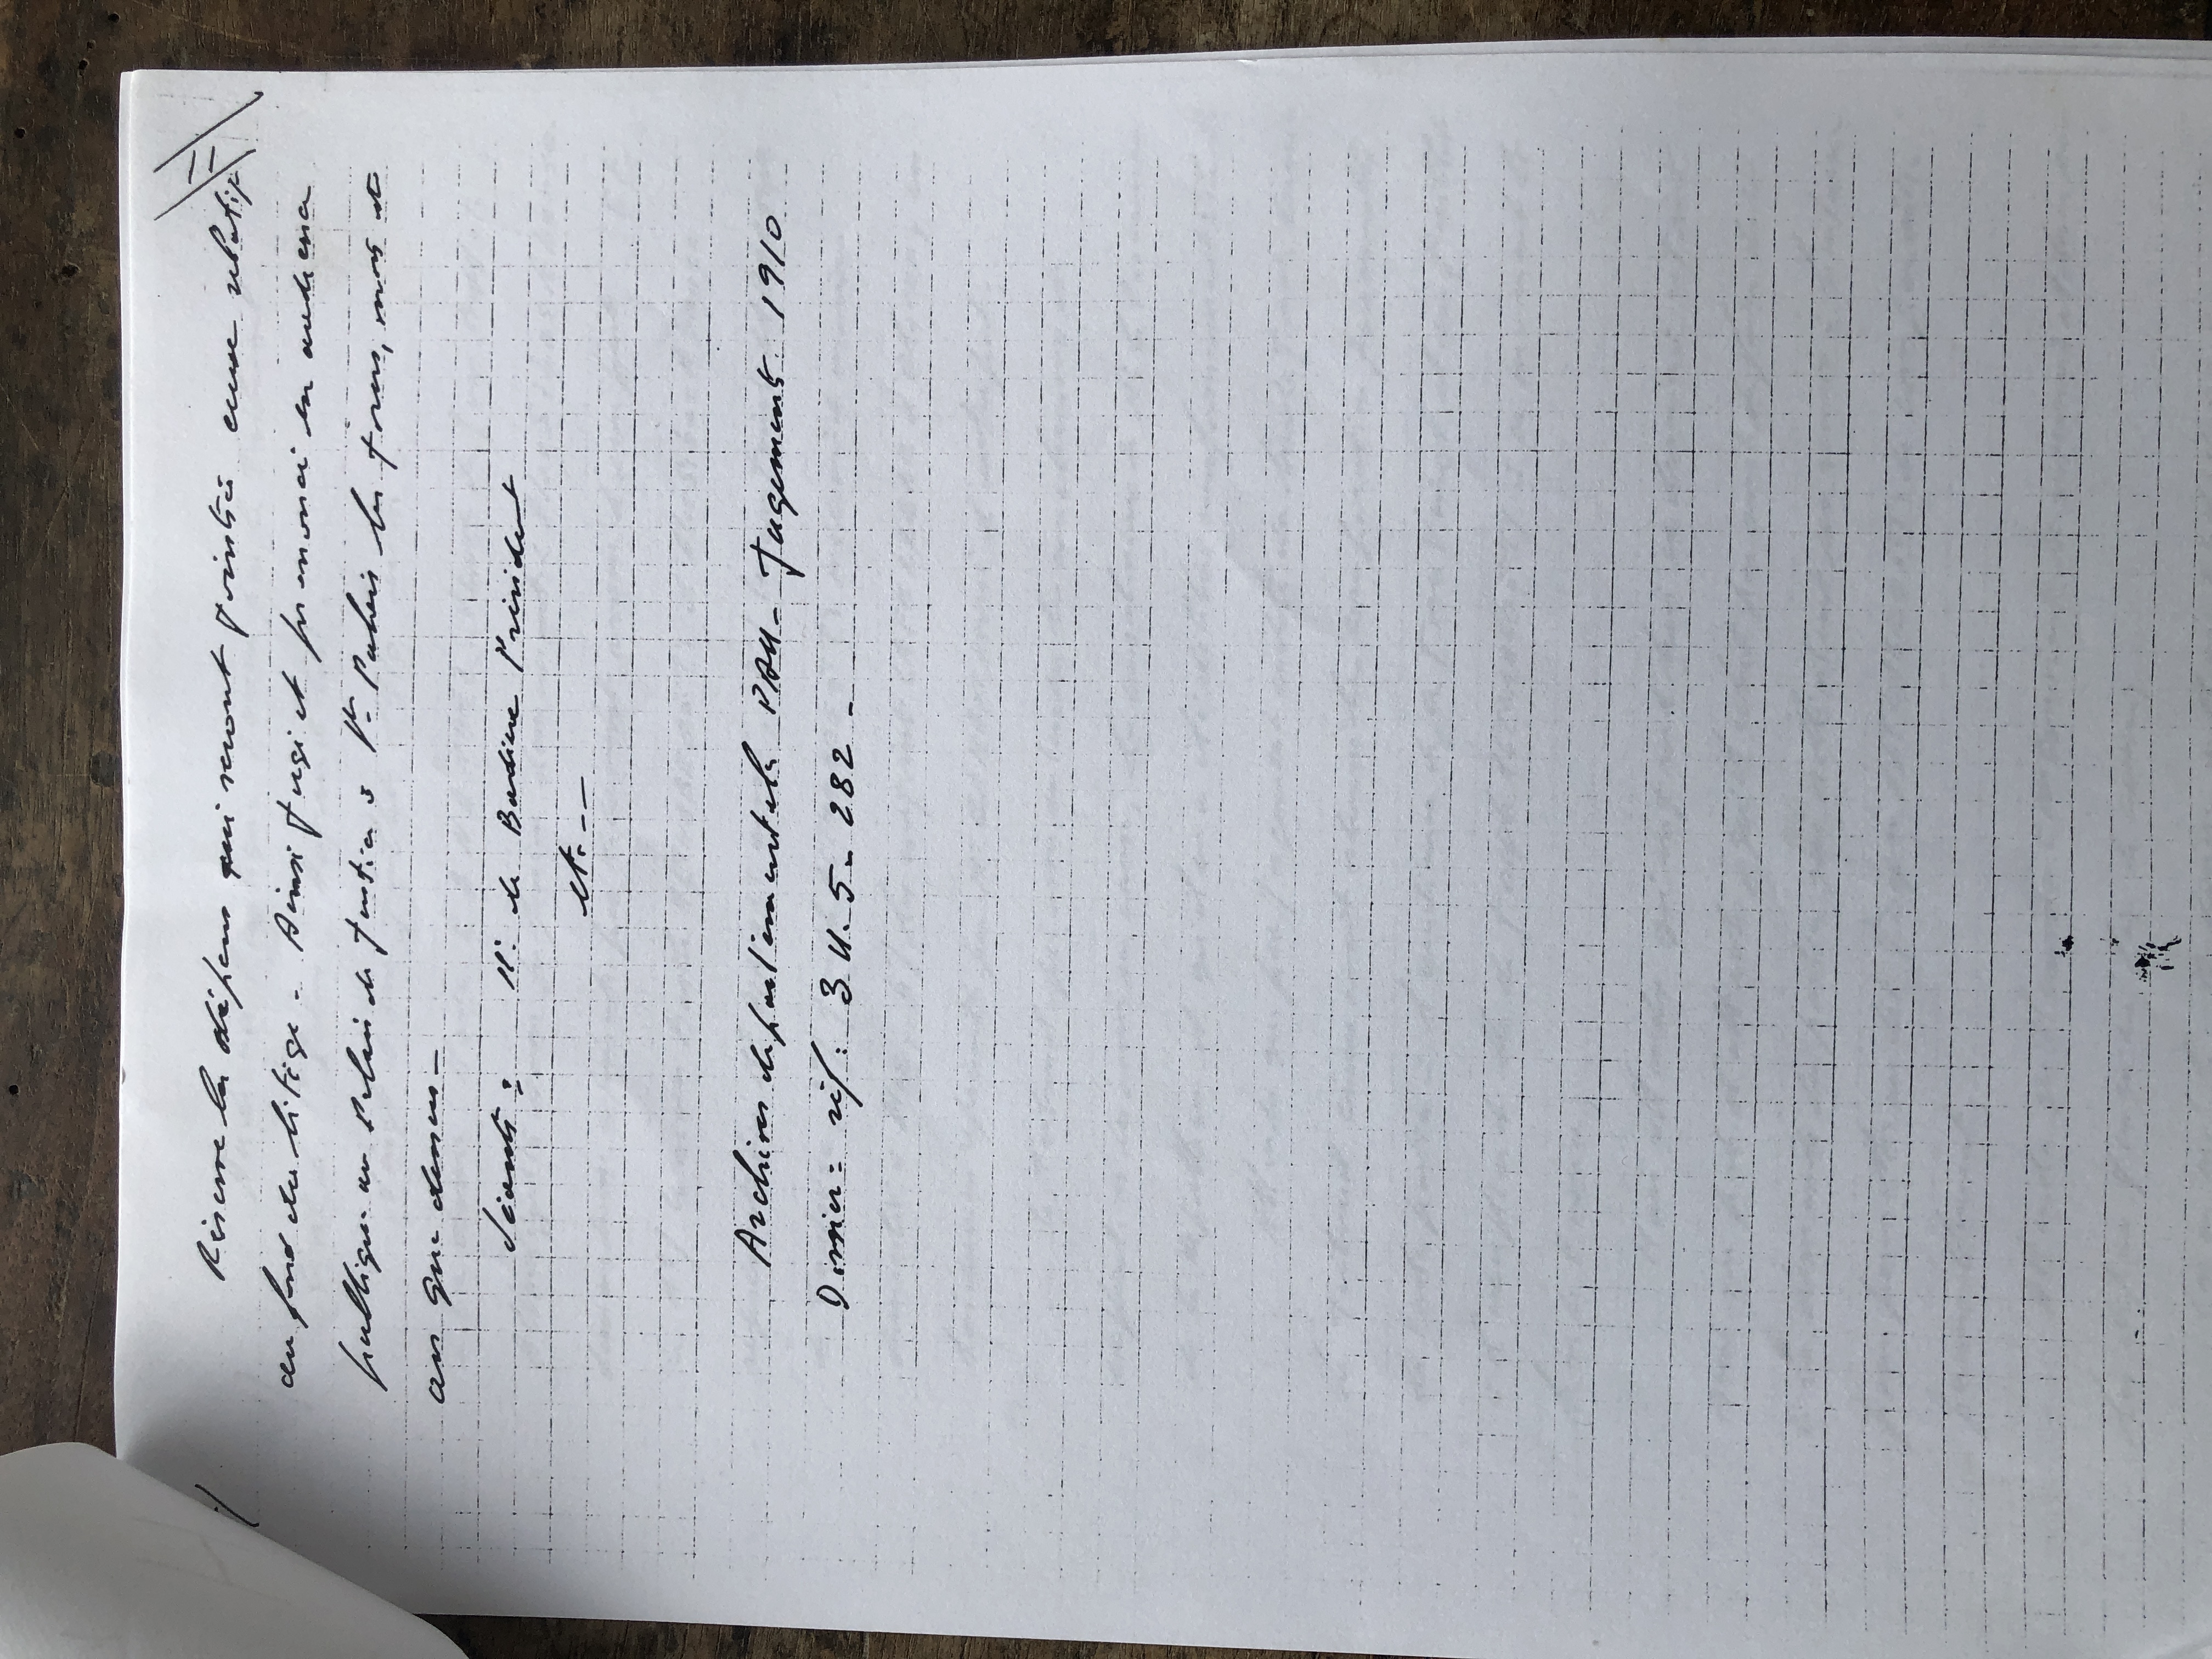 Réserve les dépens qui seront joints à ceux relatifs
au fond du litige - Ainsi jugé et prononcé en audience
publique au Palais de Justice à St Palais les jour, mois et
an que dessus -
Séants : M. de Bardine Président
et. --
Archives départementales PAU - Jugements 1910
Dossier = réf : 3 U. 5 - 282 -